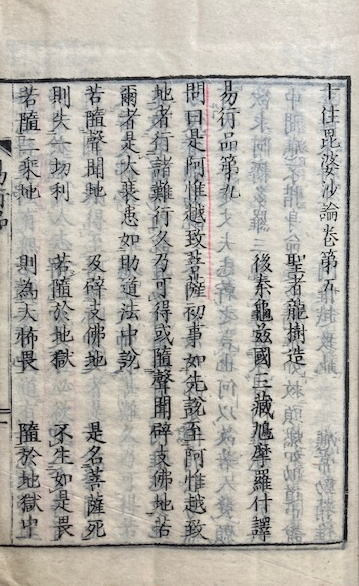 十住毘婆沙論卷第五
聖者龍樹造
後秦龜茲國三藏鳩摩羅什譯
易行品第九
問曰是阿惟越致菩薩初事如先說至阿惟越致
地者行諸難行久乃可得或墮聲聞辟支佛地若
爾者是大衰患如助道法中說
若墮聲聞地 及辟支佛地 是名菩薩死
則失一切利 若墮於地獄 不生如是畏
若墮二乘地 則為大怖畏 墮於地獄中
易行品